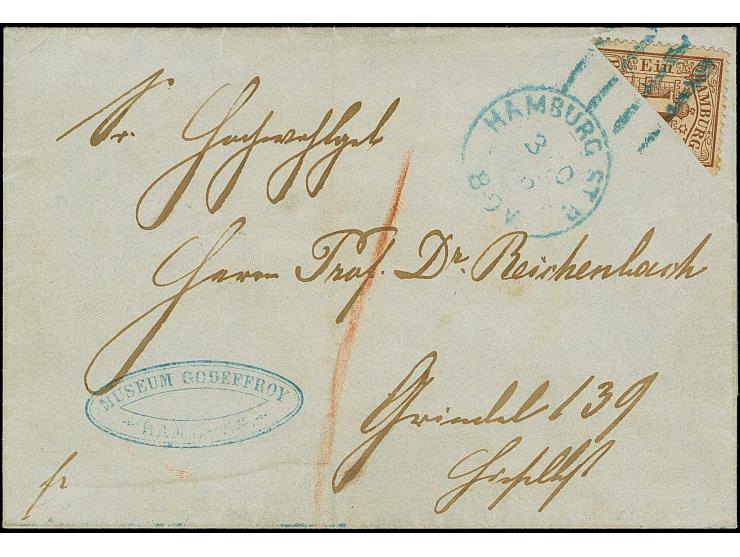 Ein
HAMBURG
HAMBURG ST. P.
Sr. Hochwohlgeb
Herrn Prof. Dr. Reichenbach
MUSEUM GODEFFROY
HAMBURG
Grindel 139
Hieselbst
fr